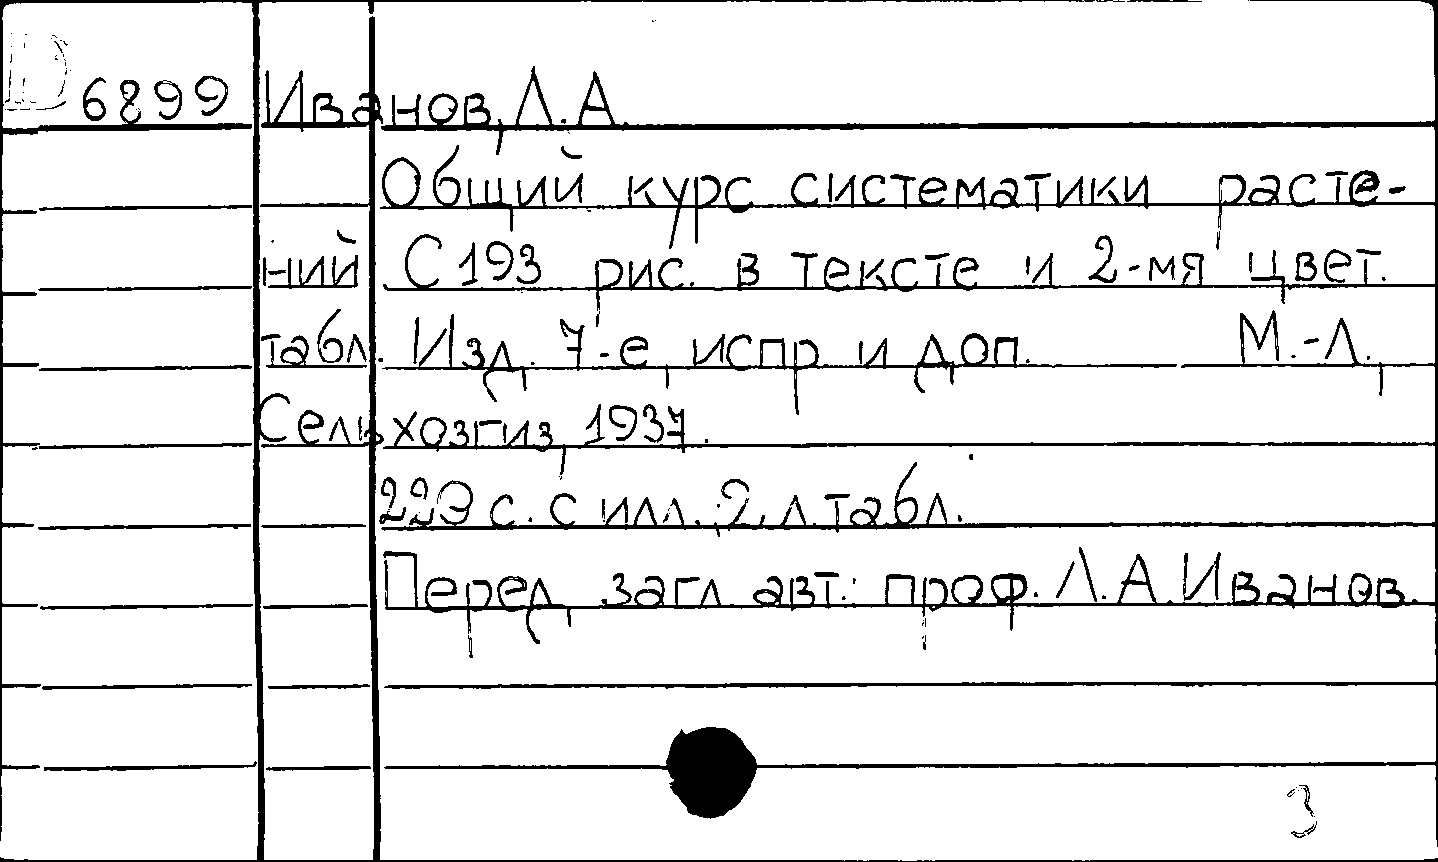 D 6899 Иванов, Л.А.
Общий курс систематики расте-
ний. С 193 рис. в тексте и 2-мя цвет.
табл. Изд. 7-е, испр и доп. М.-Л.,
Сельхозгиз, 1937.
с. с илл.; 2 л. табл.
Перед загл авт.: проф. Л.А.Иванов.
3